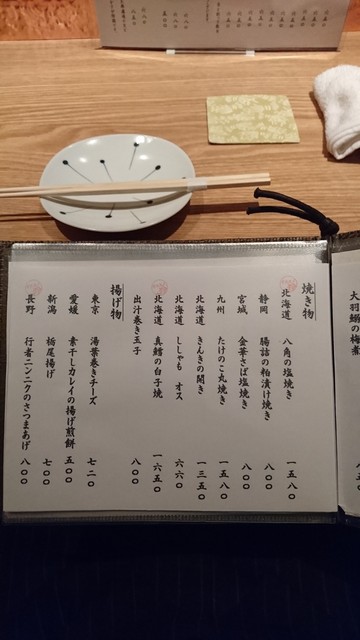 焼き物
北海道 八角の塩焼き 一五八〇
静岡 腸詰の粕漬け焼き 八〇〇
宮城 金華さば塩焼き 八〇〇
九州 たけのこ丸焼き 一五八〇
北海道 きんきの開き 一三五〇
北海道 ししゃも オス 六六〇
北海道 真鱈の白子焼 一六五〇
出汁巻き玉子 八〇〇
揚げ物
東京 湯葉巻きチーズ 七二〇
愛媛 素干しカレイの揚げ煎餅 五〇〇
新潟 栃尾揚げ 七〇〇
長野 行者ニンニクのさつまあげ 八〇〇
大羽鰯の梅煮